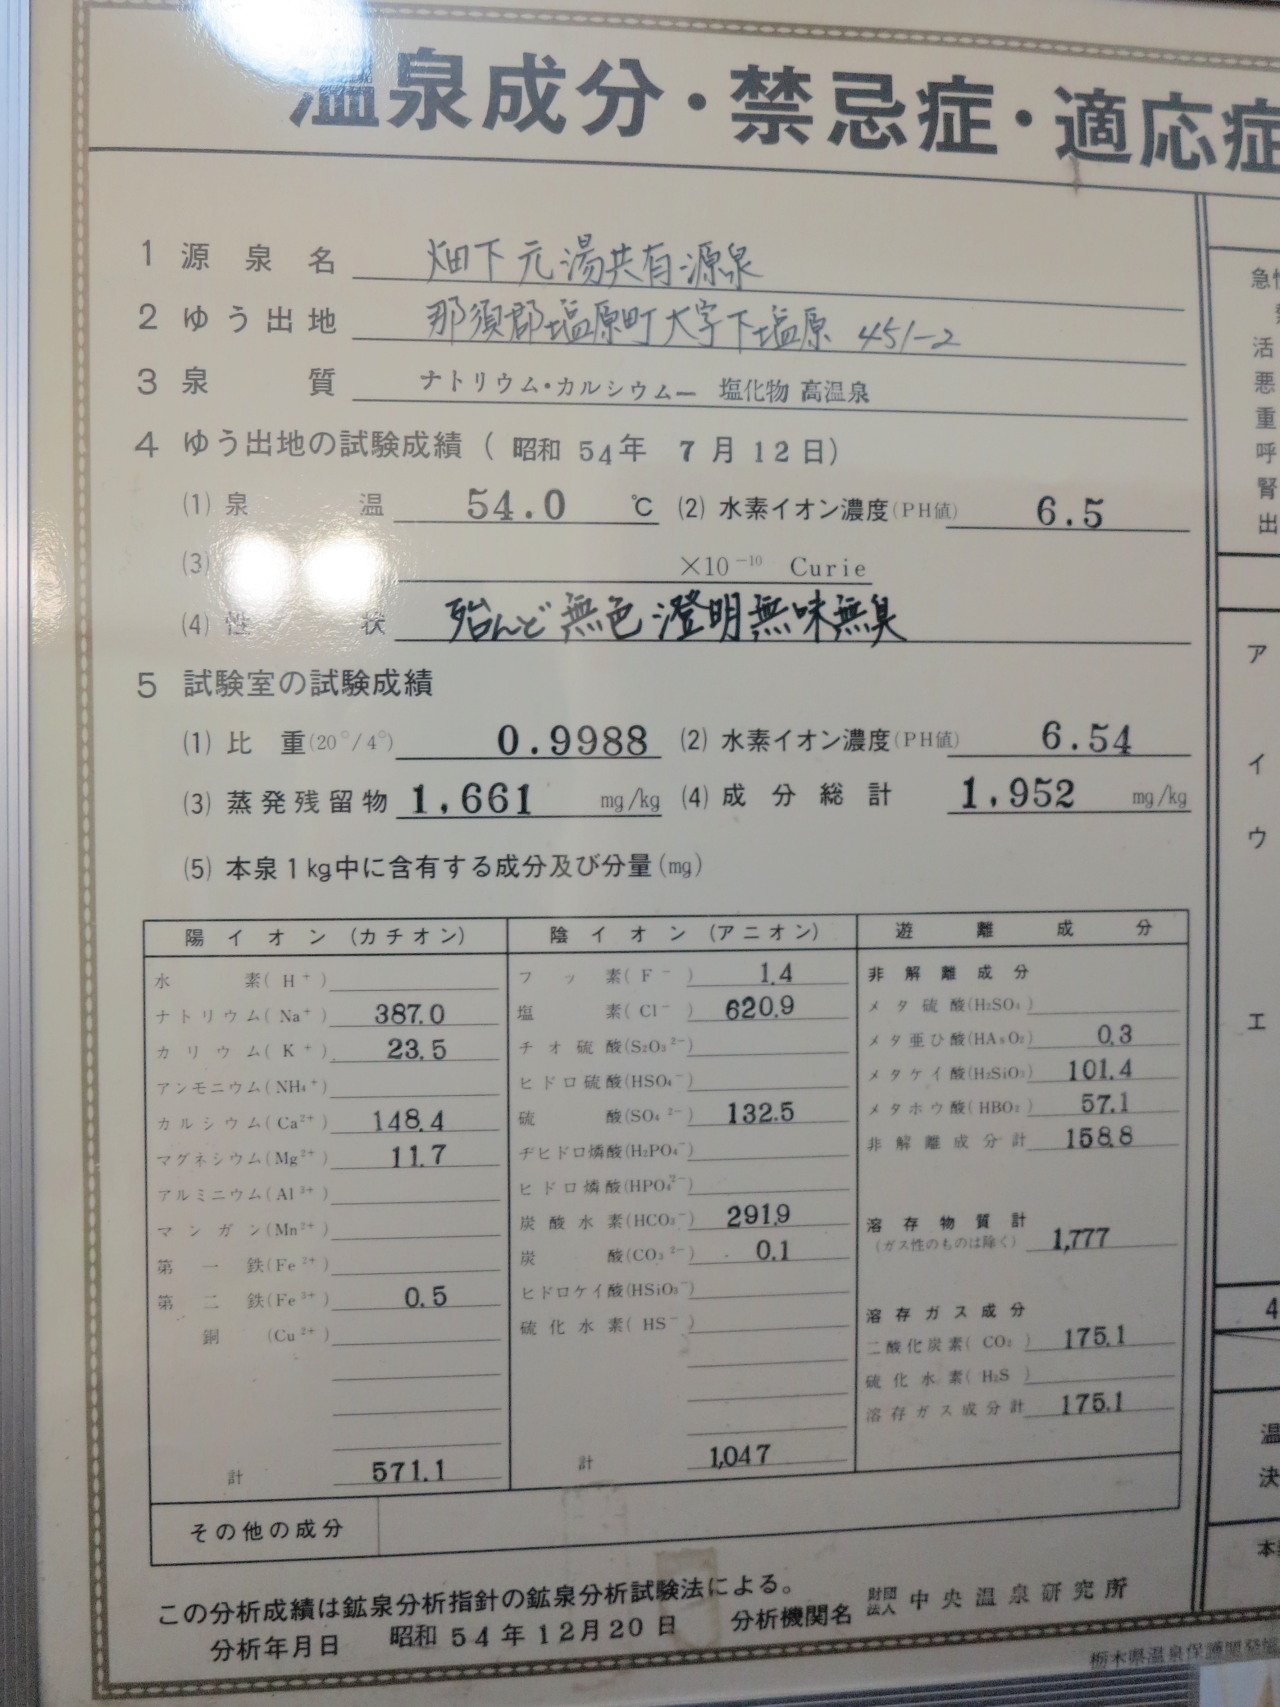 温泉成分・禁忌症・適応症
1 源泉名 畑下元湯共有源泉
2 ゆう出地 那須郡塩原町大字下塩原 451-2
3 泉質 ナトリウム・カルシウムー 塩化物 高温泉
4 ゆう出地の試験成績 ( 昭和 54年 7月12日)
(1) 泉温 54.0 ℃ (2) 水素イオン濃度(PH値) 6.5
(3) ×10⁻¹⁰ Curie
(4) 性状 殆んど無色澄明無味無臭
5 試験室の試験成績
(1) 比重(20°/4°) 0.9988 (2) 水素イオン濃度(PH値) 6.54
(3) 蒸発残留物 1,661 mg/kg (4) 成分総計 1,952 mg/kg
(5) 本泉1kg中に含有する成分及び分量(mg)
陽イオン (カチオン)
水素(H⁺)
ナトリウム(Na⁺) 387.0
カリウム(K⁺) 23.5
アンモニウム(NH₄⁺)
カルシウム(Ca²⁺) 148.4
マグネシウム(Mg²⁺) 11.7
アルミニウム(Al³⁺)
マンガン(Mn²⁺)
第一鉄(Fe²⁺)
第二鉄(Fe³⁺) 0.5
銅(Cu²⁺)
計 571.1
陰イオン (アニオン)
フッ素(F⁻) 1.4
塩素(Cl⁻) 620.9
チオ硫酸(S₂O₃²⁻)
ヒドロ硫酸(HSO₄⁻)
硫酸(SO₄²⁻) 132.5
ヂヒドロ燐酸(H₂PO₄⁻)
ヒドロ燐酸(HPO₄²⁻)
炭酸水素(HCO₃⁻) 291.9
炭酸(CO₃²⁻) 0.1
ヒドロケイ酸(HSiO₃⁻)
硫化水素(HS⁻)
計 1,047
遊離成分
非解離成分
メタ硫酸(H₂SO₄)
メタ亜ひ酸(HAsO₂) 0.3
メタケイ酸(H₂SiO₃) 101.4
メタホウ酸(HBO₂) 57.1
非解離成分計 158.8
溶存物質計 1,777
(ガス性のものは除く)
溶存ガス成分
二酸化炭素(CO₂) 175.1
硫化水素(H₂S)
溶存ガス成分計 175.1
その他の成分
この分析成績は鉱泉分析指針の鉱泉分析試験法による。
分析年月日 昭和 54年12月20日 分析機関名 財団法人 中央温泉研究所
栃木県温泉保護開発
急性
活
悪
重
呼
腎
出
ア
イ
ウ
エ
4
温
決
本